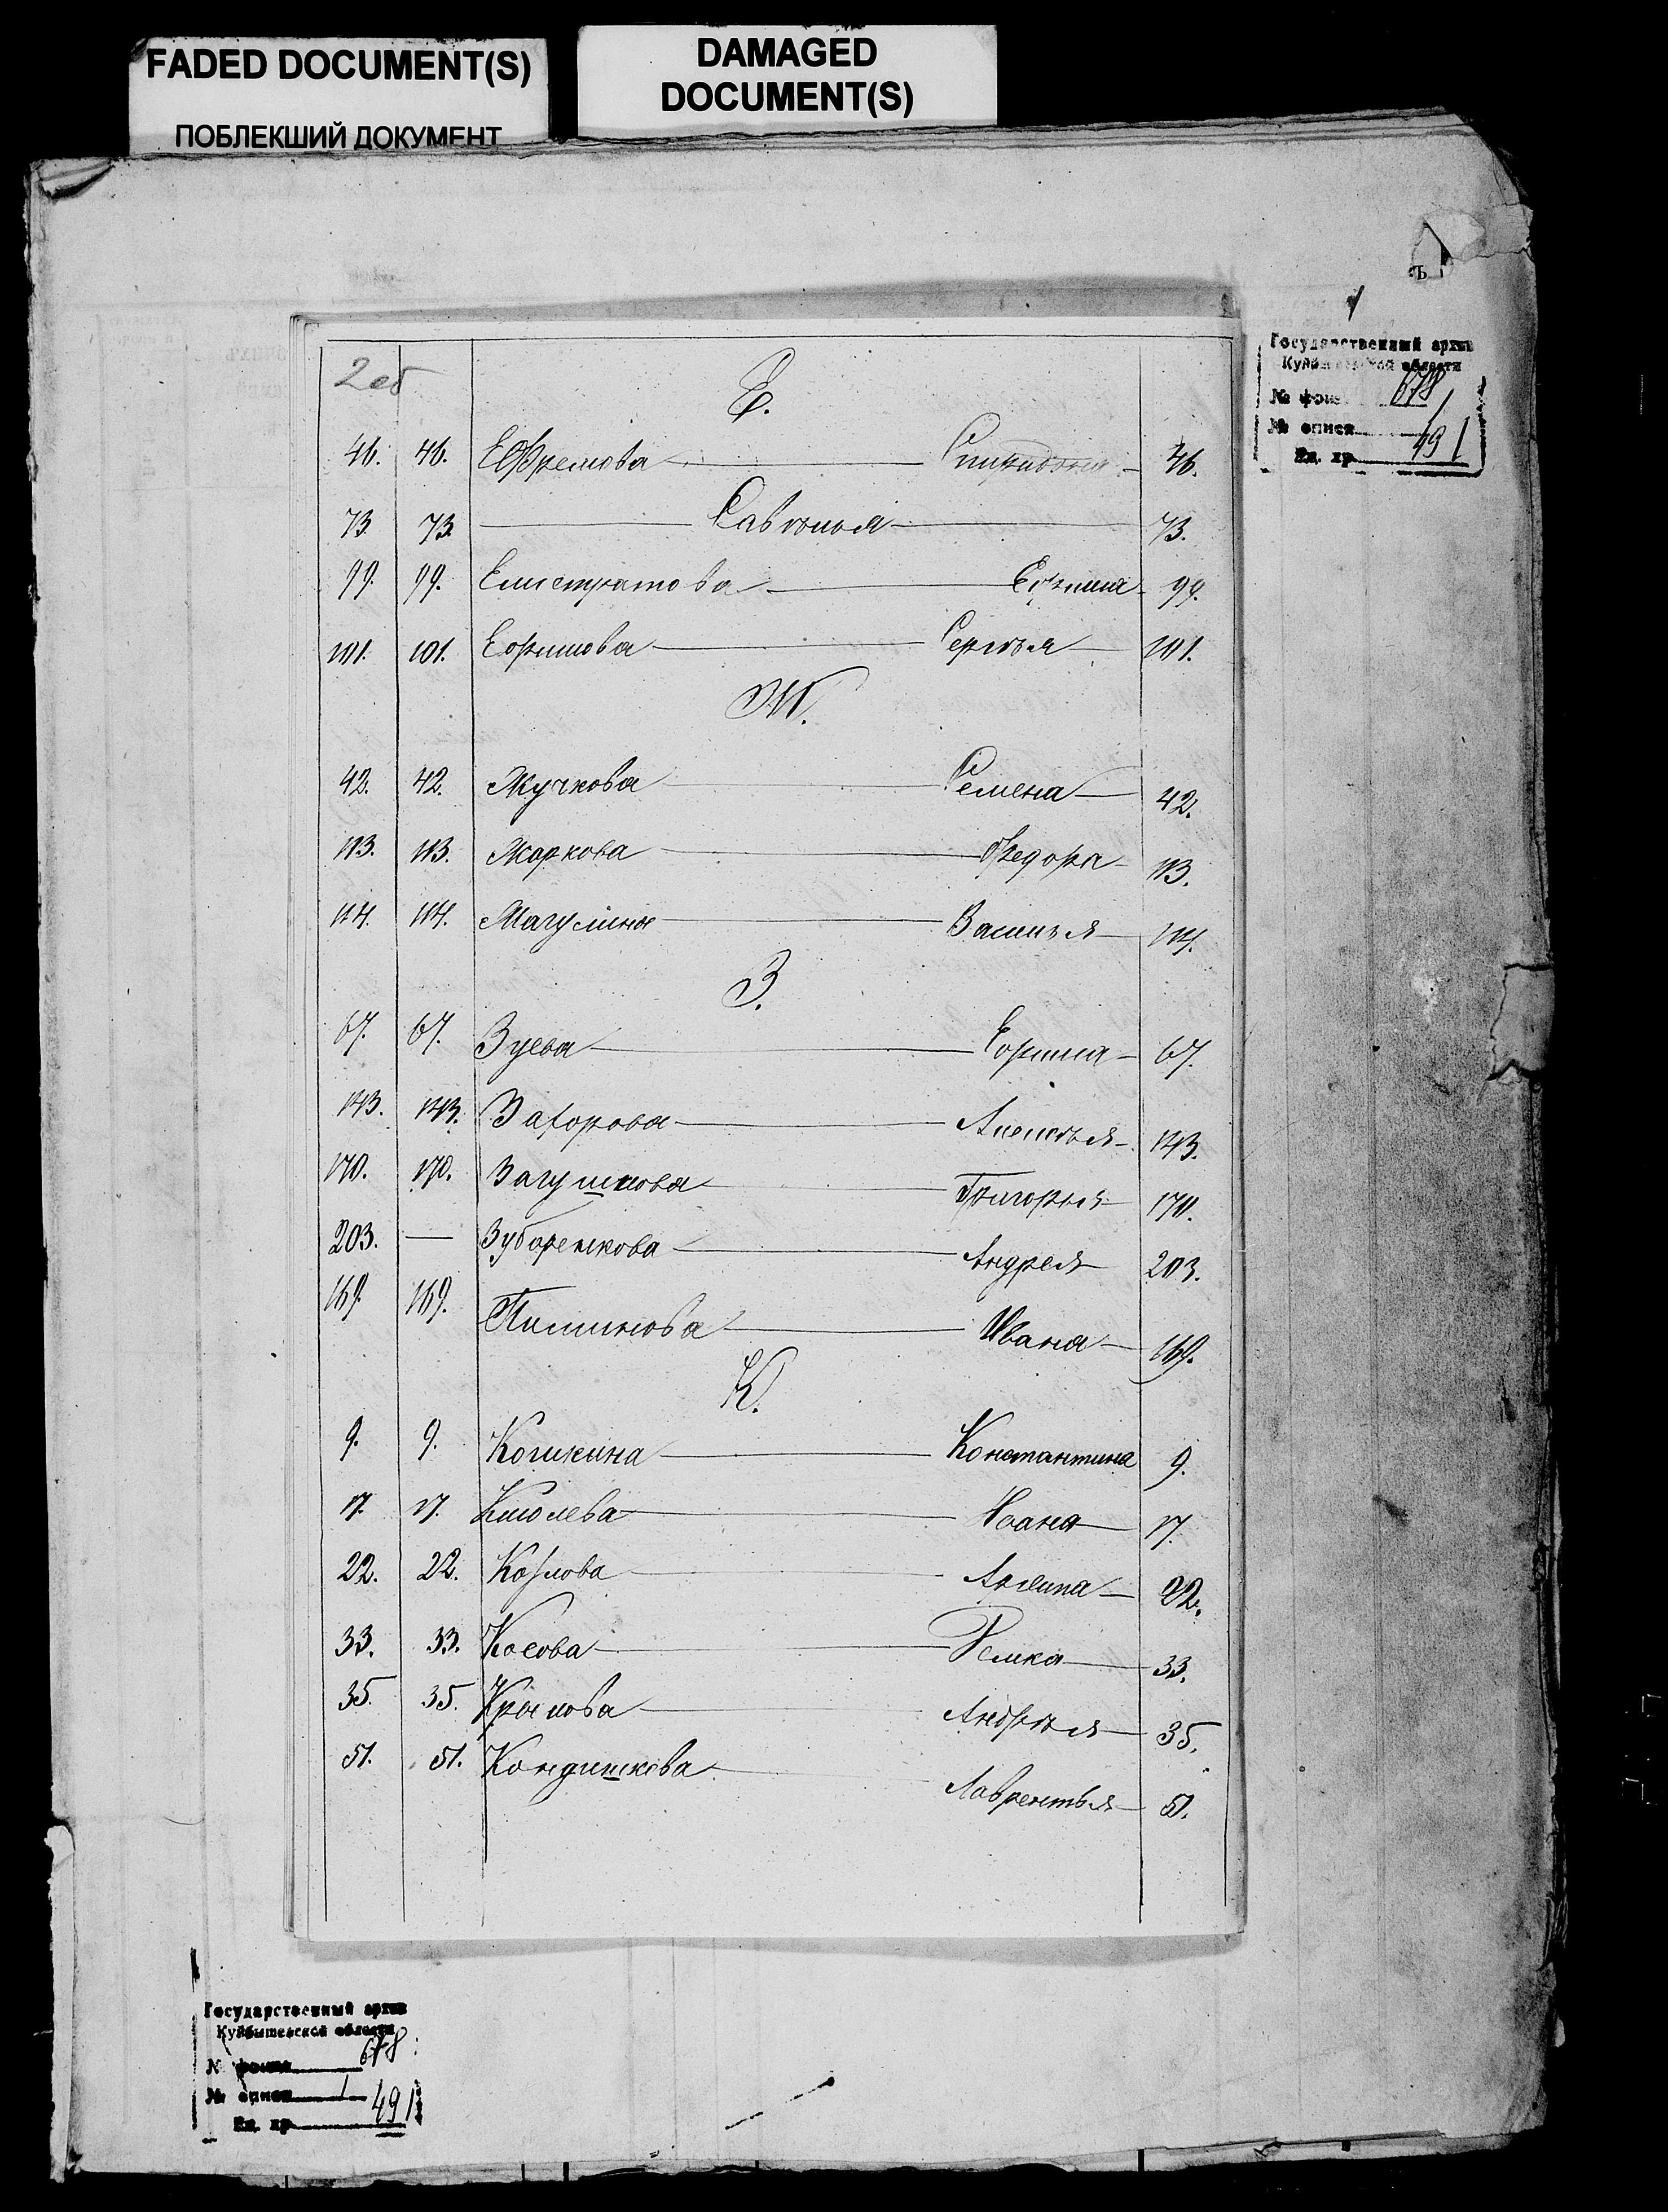 FADED DOCUMENT(S)
ПОБЛЕКШИЙ ДОКУМЕНТ
DAMAGED
DOCUMENT(S)
ъ
Государственный архив
Куйбышевской области
№ фонда 678
№ описи 1
Ед. хр. 491
2об
Е.
46. 46. Ефремова Спиридона 46.
73. 73. Савелья 73.
99. 99. Елистратова Ефима 99.
101. 101. Ефимова Сергѣя 101.
Ж.
42. 42. Жучкова Семена 42.
113. 113. Жаркова Федора 113.
114. 114. Жагулина Василья 114.
З.
67. 67. Зуева Ефима 67.
143. 143. Захорова Алексѣя 143.
170. 170. Загушкова Григорья 170.
203. — Зубаренкова Андрея 203.
169. 169. Ивана 169.
К.
9. 9. Кошкина Константина 9.
17. 17. Ивана 17.
22. 22. Козлова Архипа 22.
33. 33. Косова 33.
35. 35. Крылова Андрѣя 35.
51. 51. Кондишкова Лаврентья 51.
Государственный архив
Куйбышевской области
№ фонда 678
№ описи 1
Ед. хр. 491